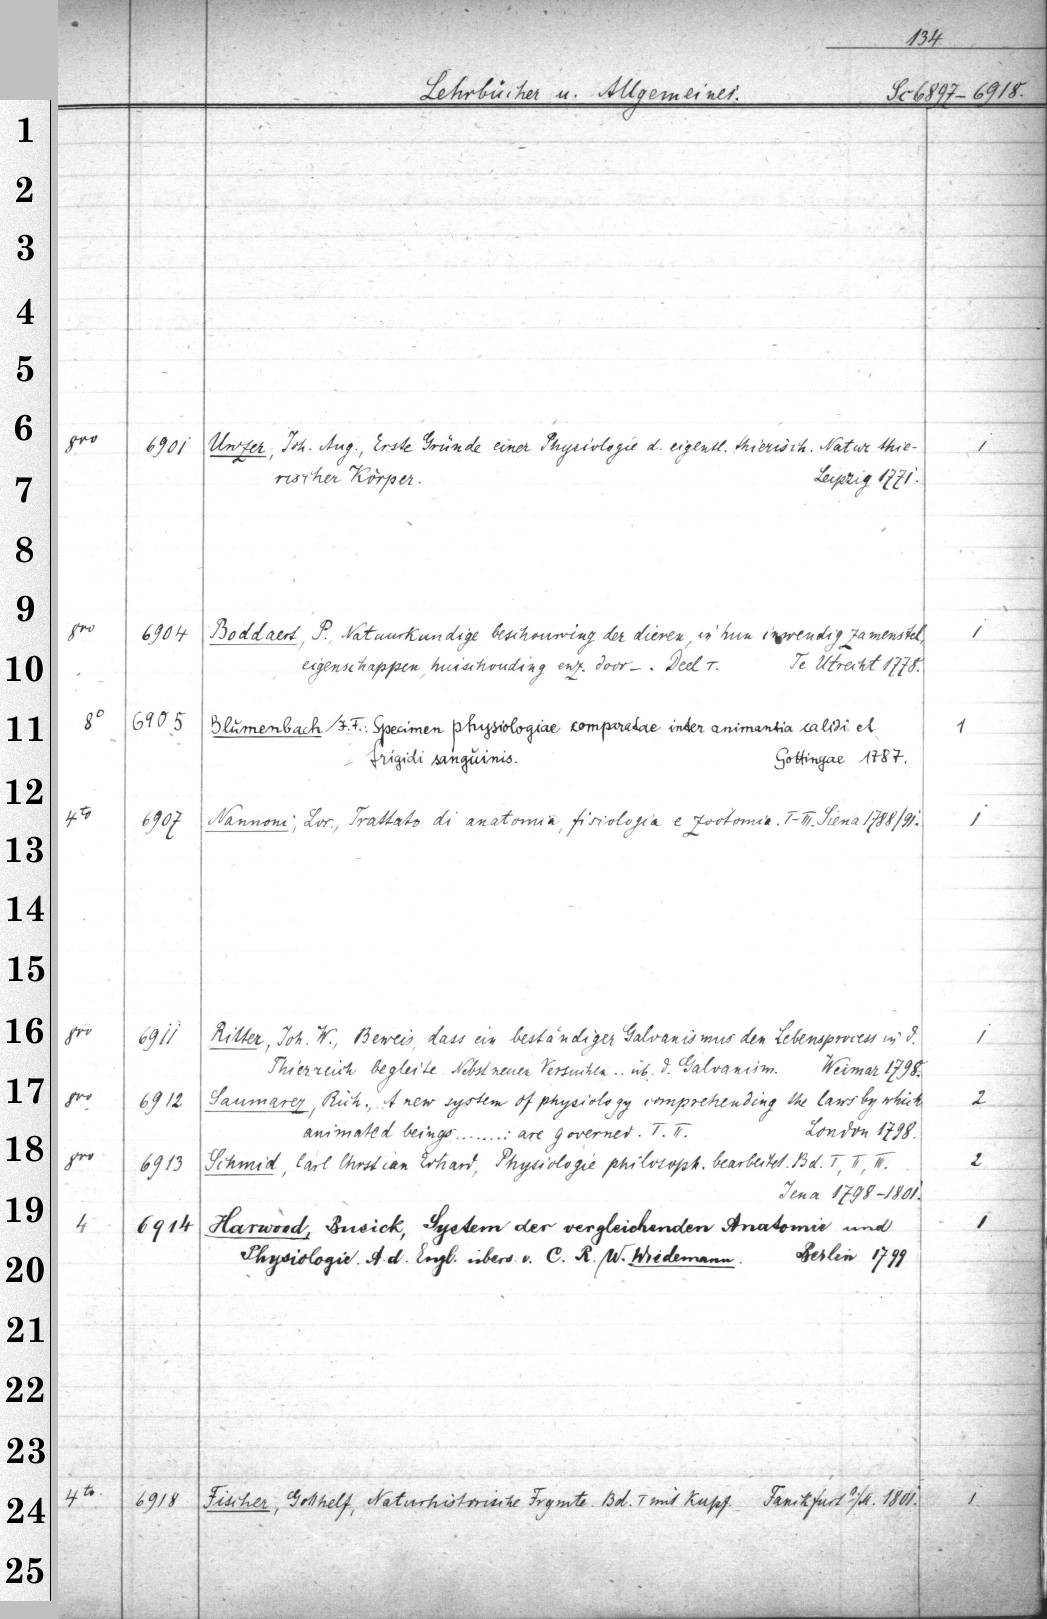 134
Lehrbücher u. Allgemeines. Sc 6897-6918.
1
2
3
4
5
6
8vo 6901 Unzer, Joh. Aug., Erste Gründe einer Physiologie d. eigentl. thierisch. Natur thie- 1
rischer Körper. Leipzig 1771.
7
8
9
8vo 6904 Boddaert, P., Natuurkundige beschouwing der dieren, in hun inwendig zamenstel, 1
eigenschappen, huishouding enz. door _ . Deel I. Te Utrecht 1778.
10
8° 6905 Blumenbach, J. F.: Specimen physiologiae comparatae inter animantia calidi et 1
11
frigidi sanguinis. Gottingae 1787.
12
4to 6907 Nannoni, Lor., Trattato di anatomia, fisiologia e zootomia. I-III. Siena 1788/91. 1
13
14
15
16
8vo 6911 Ritter, Joh. W., Beweis, dass ein beständiger Galvanismus den Lebensprocess in d. 1
Thierreich begleite. Nebst neuen Versuchen .. üb. d. Galvanism. Weimar 1798.
17
8vo 6912 Saumarez, Rich., A new system of physiology comprehending the laws by which 2
animated beings.......: are governed. T. II. London 1798.
18
8vo 6913 Schmid, Carl Christian Erhard, Physiologie philosoph. bearbeitet. Bd. I, II, III. 2
Jena 1798-1801.
19
4 6914 Harwood, Busick, System der vergleichenden Anatomie und 1
Physiologie. A. d. Engl. übers. v. C. R. W. Wiedemann. Berlin 1799
20
21
22
23
4to. 6918 Fischer, Gotthelf, Naturhistorische Frgmte. Bd. I mit Kupf. Fankfurt a/M. 1801. 1
24
25